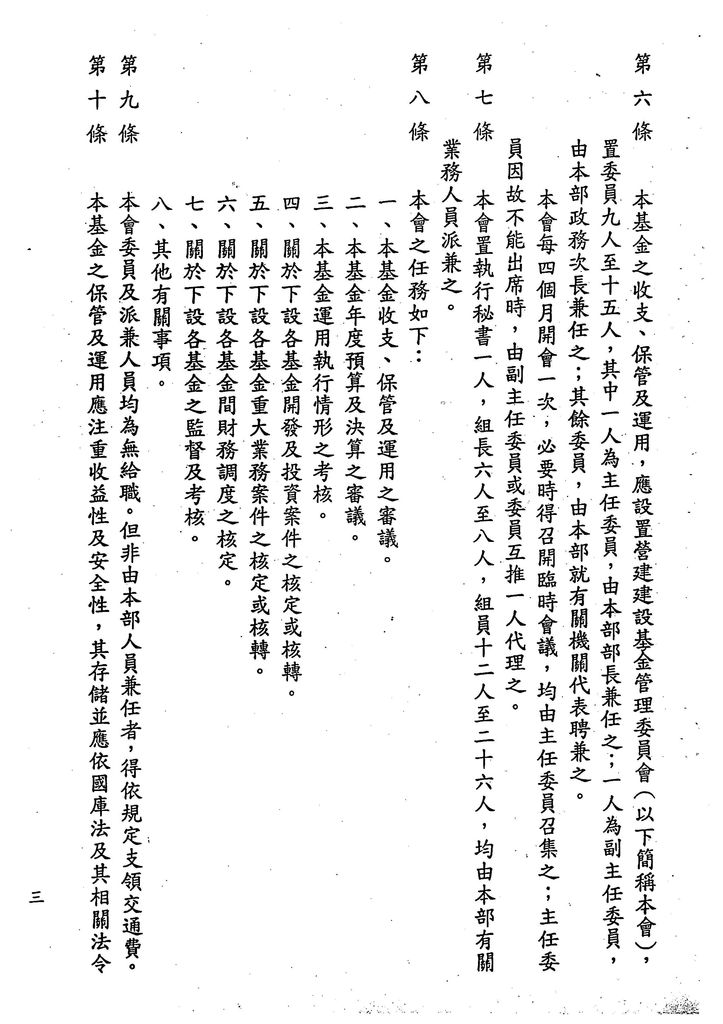 第六條　本基金之收支、保管及運用，應設置營建建設基金管理委員會（以下簡稱本會），
置委員九人至十五人，其中一人為主任委員，由本部部長兼任之；一人為副主任委員，
由本部政務次長兼任之；其餘委員，由本部就有關機關代表聘兼之。
本會每四個月開會一次，必要時得召開臨時會議，均由主任委員召集之；主任委
員因故不能出席時，由副主任委員或委員互推一人代理之。
第七條　本會置執行秘書一人，組長六人至八人，組員十二人至二十六人，均由本部有關
業務人員派兼之。
第八條　本會之任務如下：
一、本基金收支、保管及運用之審議。
二、本基金年度預算及決算之審議。
三、本基金運用執行情形之考核。
四、關於下設各基金開發及投資案件之核定或核轉。
五、關於下設各基金重大業務案件之核定或核轉。
六、關於下設各基金間財務調度之核定。
七、關於下設各基金之監督及考核。
八、其他有關事項。
第九條　本會委員及派兼人員均為無給職。但非由本部人員兼任者，得依規定支領交通費。
第十條　本基金之保管及運用應注重收益性及安全性，其存儲並應依國庫法及其相關法令
三